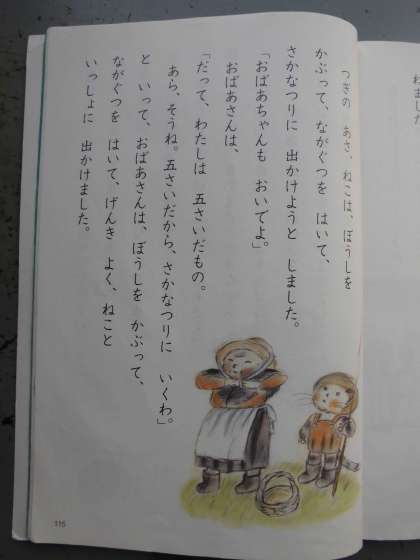 つぎの　あさ、ねこは、ぼうしを
かぶって、ながぐつを　はいて、
さかなつりに　出かけようと　しました。
「おばあちゃんも　おいでよ」
おばあさんは、
「だって、わたしは　五さいだもの。
あら、そうね。五さいだから、さかなつりに　いくわ」。
と　いって、おばあさんは、ぼうしを　かぶって、
ながぐつを　はいて、げんき　よく、ねこと
いっしょに　出かけました。
115